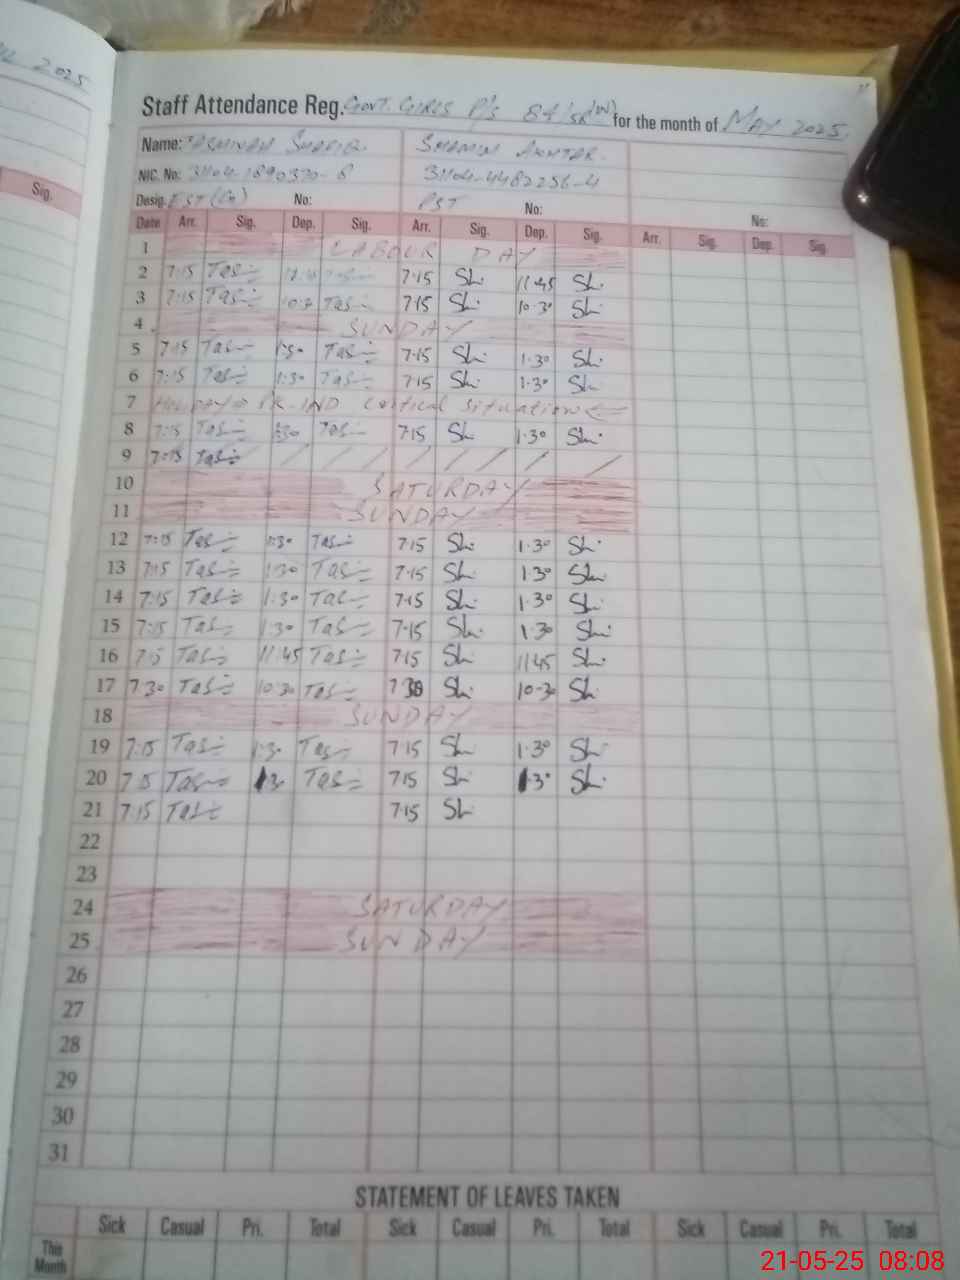 2025
Sig.
Staff Attendance Reg. GOVT. GIRLS P/S 84/5R(W) for the month of MAY 2025
Name: SHAMIM AKHTAR.
NIC. No: 31104-4482256-4
Desig. EST No: PST No: No:
Date Arr. Sig. Dep. Sig. Arr. Sig. Dep. Sig. Arr. Sig. Dep. Sig.
1 LABOUR DAY
2 7:15 Tas 7.15 Sh. 11.45 Sh.
3 7:15 Tas Tas 7.15 Sh. 10.30 Sh.
4 SUNDAY
5 7:15 Tas 1:30 Tas 7.15 Sh. 1.30 Sh.
6 7:15 Tas 1:30 Tas 7.15 Sh. 1.30 Sh.
7 HOLIDAY PK-IND Critical situation
8 7:15 Tas 1:30 Tas 7.15 Sh 1.30 Sh.
9 7:15 Tas / / / / / / / /
10 SATURDAY
11 SUNDAY
12 7:15 Tas 1:30 Tas 7.15 Sh. 1.30 Sh.
13 7:15 Tas 1:30 Tas 7.15 Sh. 1.30 Sh.
14 7:15 Tas 1:30 Tas 7.15 Sh. 1.30 Sh.
15 7:15 Tas 1:30 Tas 7.15 Sh. 1.30 Sh.
16 Tas 11:45 Tas 7.15 Sh. 11.45 Sh.
17 7:30 Tas 10:30 Tas 7.30 Sh. 10.30 Sh.
18 SUNDAY
19 7:15 Tas 1:30 Tas 7.15 Sh. 1.30 Sh.
20 7:15 Tas 1:30 Tas 7.15 Sh. 1.30 Sh.
21 7:15 Tas 7.15 Sh.
22
23
24 SATURDAY
25 SUNDAY
26
27
28
29
30
31
STATEMENT OF LEAVES TAKEN
Sick Casual Pri. Total Sick Casual Pri. Total Sick Casual Pri. Total
This
Month
21-05-25 08:08